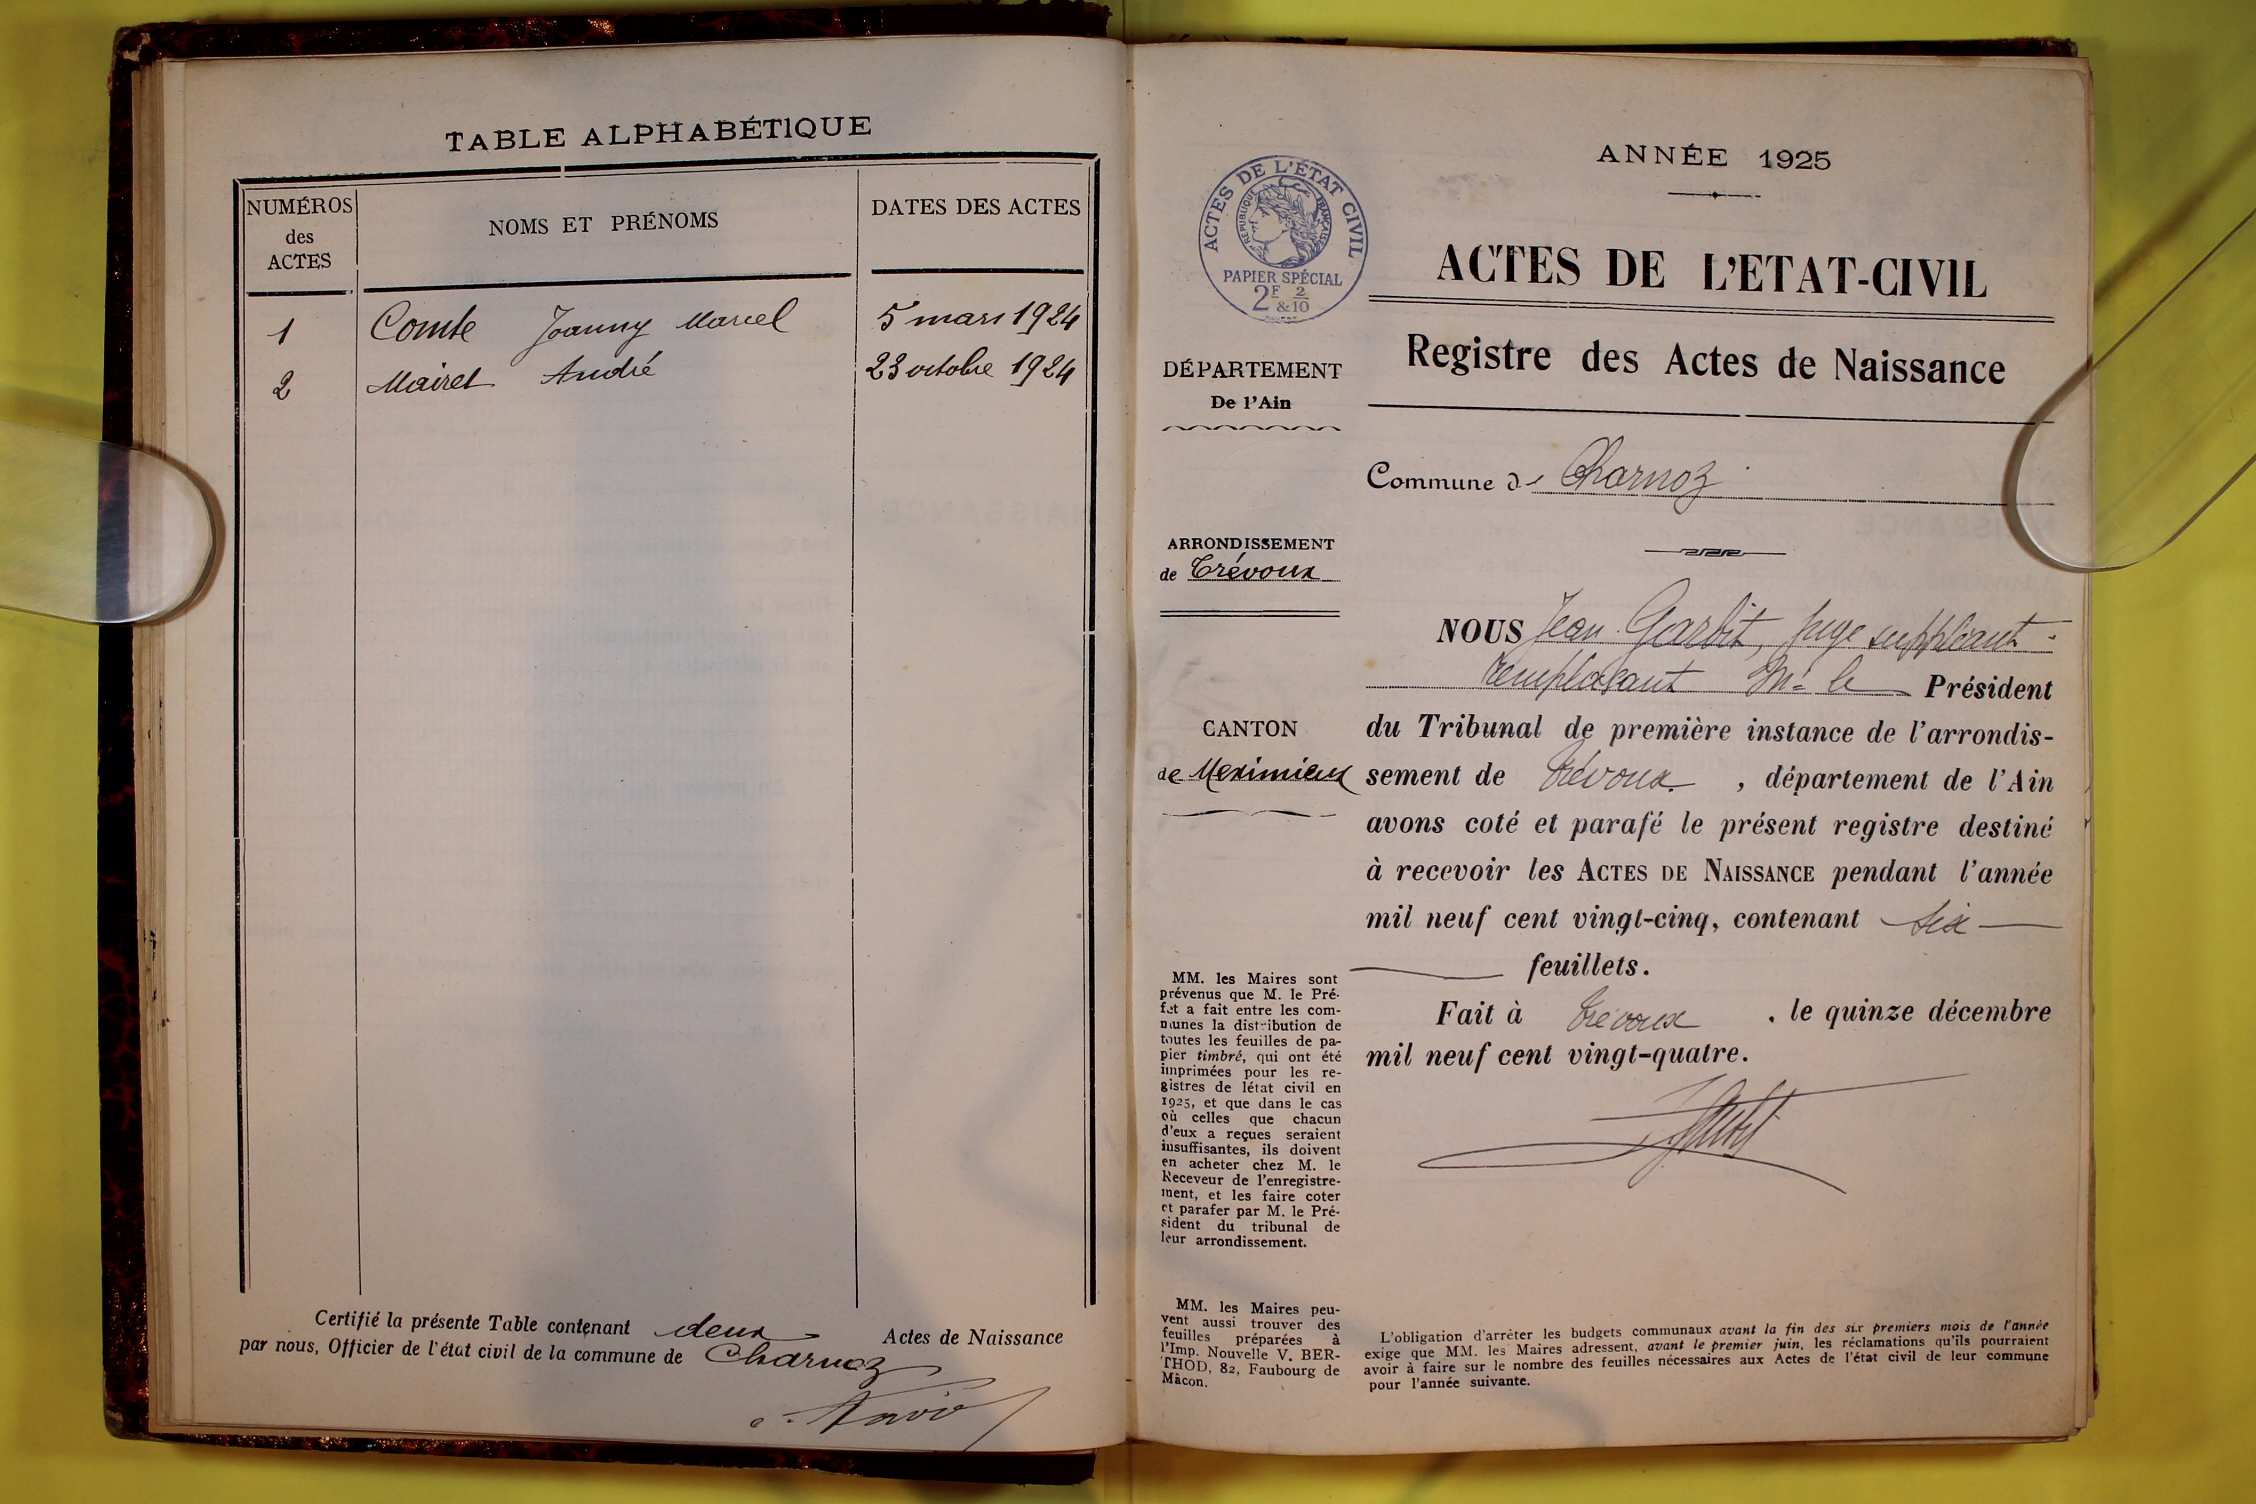 TABLE ALPHABÉTIQUE
NUMÉROS
des
ACTES
NOMS ET PRÉNOMS
DATES DES ACTES
1 Comte Joanny Marcel 5 mars 1924
2 Mairet André 23 octobre 1924
Certifié la présente Table contenant deux Actes de Naissance
par nous, Officier de l'état civil de la commune de Charnoz
ANNÉE 1925
ACTES DE L'ÉTAT CIVIL
RÉPUBLIQUE FRANÇAISE
PAPIER SPÉCIAL
2F 2
&10
ACTES DE L'ETAT-CIVIL
Registre des Actes de Naissance
DÉPARTEMENT
De l'Ain
Commune de Charnoz
ARRONDISSEMENT
de Trévoux
CANTON
de Meximieux
NOUS Jean Garbit, juge suppléant
remplaçant Mr le Président
du Tribunal de première instance de l'arrondis-
sement de Trévoux, département de l'Ain
avons coté et parafé le présent registre destiné
à recevoir les ACTES DE NAISSANCE pendant l'année
mil neuf cent vingt-cinq, contenant six
feuillets.
Fait à Trévoux, le quinze décembre
mil neuf cent vingt-quatre.
MM. les Maires sont
prévenus que M. le Pré-
fet a fait entre les com-
munes la distribution de
toutes les feuilles de pa-
pier timbré, qui ont été
imprimées pour les re-
gistres de létat civil en
1925, et que dans le cas
où celles que chacun
d'eux a reçues seraient
insuffisantes, ils doivent
en acheter chez M. le
Receveur de l'enregistre-
ment, et les faire coter
et parafer par M. le Pré-
sident du tribunal de
leur arrondissement.
MM. les Maires peu-
vent aussi trouver des
feuilles préparées à
l'Imp. Nouvelle V. BER-
THOD, 82, Faubourg de
Mâcon.
L'obligation d'arrêter les budgets communaux avant la fin des six premiers mois de l'année
exige que MM. les Maires adressent, avant le premier juin, les réclamations qu'ils pourraient
avoir à faire sur le nombre des feuilles nécessaires aux Actes de l'état civil de leur commune
pour l'année suivante.